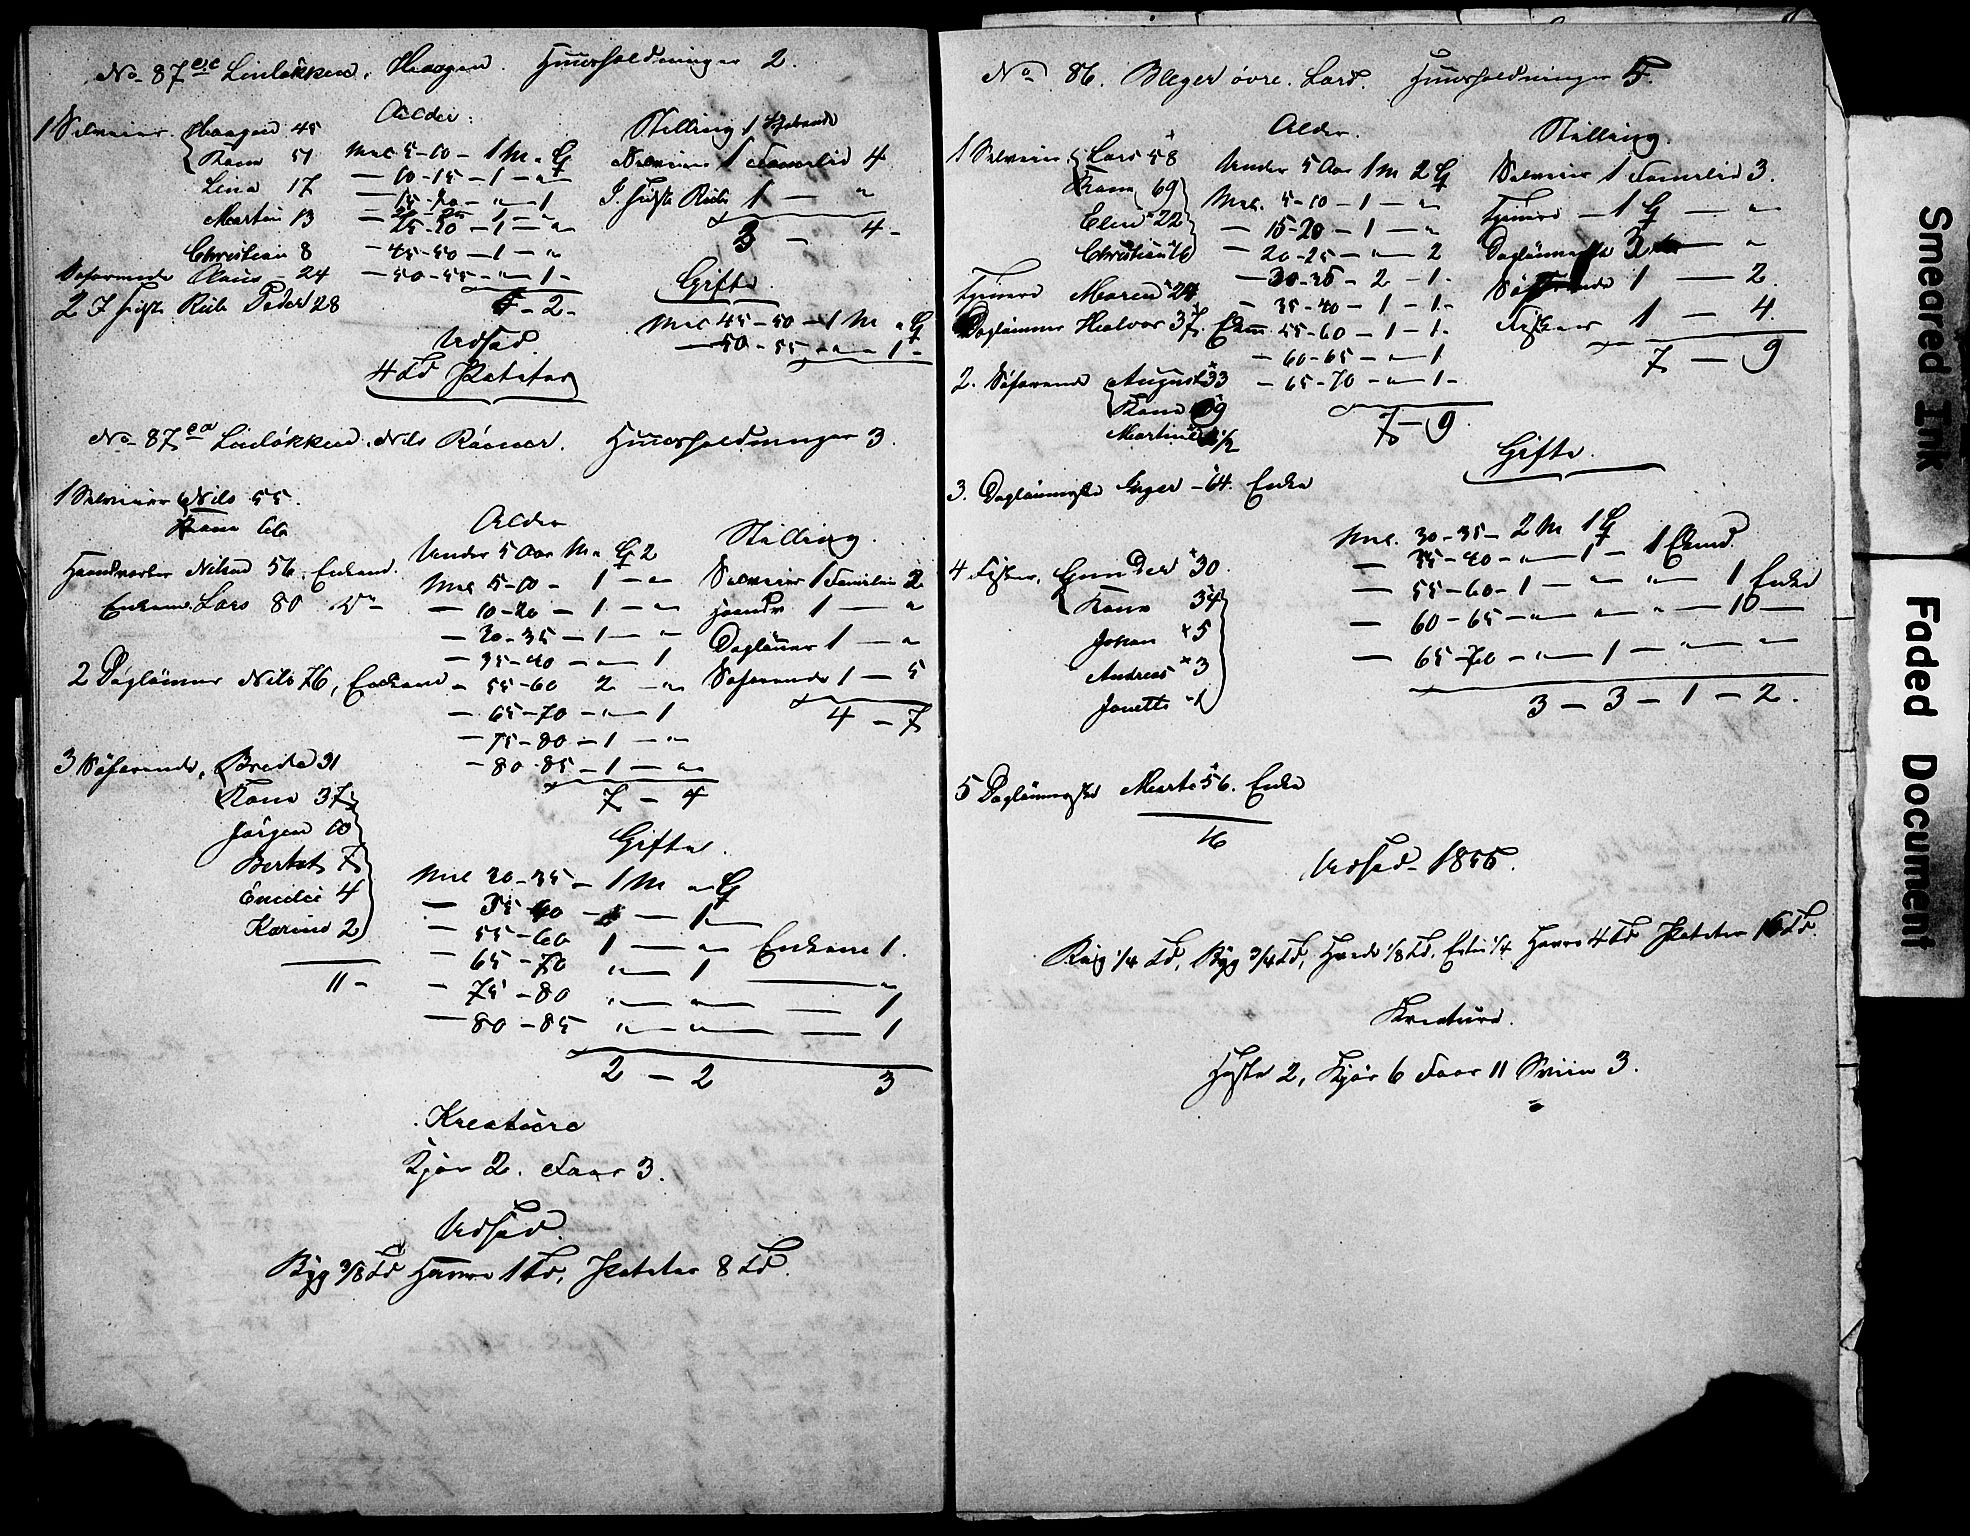 No 87 Linløkken, Haagen. Huusholdninger 2.
Alder. Stilling
1 Selveier Haagen 45
Kone 51 Mel 5-10 - 1 M " Q Selveier 1 Familie 4
Lina 17 — 10-15 - 1 - "
15-20 - " - 1
Martin 13
Christian 8 — 45-50 - 1 - "
Søfarende Claus - 24 — 50-55 - " - 1 - Gifte
2 Peder 28 5 - 2 -
Mel 45-50 - 1 M " Q
Udsæd — 50-55 - " - 1 -
4 Td Poteter
No 87 Linløkken. Nils Huusholdninger 3.
1 Selveier Nils 55.
Kone 66 Alder Stilling.
Under 5 Aar M " Q 2
Haandverker Nilsen 56, Enkem. Mel 5-10 - 1 - " Selveier 1 Familie 2
Enkem. Lars 80 — 10-20 - 1 - " Haandv 1 — "
— 30-35 - 1 - " Daglønner 1 — "
— 35-40 - " - 1
2 Daglønner Nils 76, Enkem — 55-60 2 - " Søfarende 1 — 5
— 65-70 - " - 1 4 - 7
— 75-80 - 1 - "
3 Søfarende, Brede 31 — 80-85 - 1 - "
Kone 37 7 - 4
Jørgen 10
Gifte.
7
Emilie 4 Mel 30-35 - 1 M " Q
Karine 2 — 35-40 — 1
— 55-60 1 — " Enkem 1.
11 - — 65-70 " — 1 — "
— 75-80 " — " — 1
— 80-85 " — " — 1
2 - 2 3
Kreature
Kjør 2. Faar 3.
Udsæd.
Byg 3/8 Td Havre 1 Td, Poteter 8 Td.
No 86. Bleger øvre. Lars. Huusholdninger 5.
Alder. Stilling.
1 Selveier Lars 58 Under 5 Aar 1 M 2 Q Selveier 1 Familie 3.
Kone 69 Mel. 5-10 - 1 - " Tjener — 1 Q — "
Elen 22 — 15-20 - 1 - "
Christian 16 — 20-25 - " - 2 Dagløn 3 — "
— 30-35 - 2 - 1 - Søfarende 1 — 2.
Tjener Maren 24 — 35-40 - 1 - 1 -
Dagløn Halvor 37, Ekm — 55-60 - 1 - 1 - Fisker 1 — 4.
— 60-65 - " - 1 7 — 9
2. Søfarende August 33 — 65-70 - " - 1 -
Kone 39 7 - 9
1/2
Gifte.
3. Inger - 64. Enke
Mel. 30-35 - 2 M 1 Q
4 Fisker, Gunder 30. — 35-40 - " - 1 - 1 Ekmd.
Kone 34 — 55-60 - 1 - " " 1 Enke
Johan 5 — 60-65 - " " "
Andreas 3 — 65-70 - " - 1 - " - "
Jonette 1 3 - 3 - 1 - 2.
5 Marte 56. Enke
16
Udsæd - 1855.
Rug 1/4 Td, Byg 3/4 Td, Hvede 1/8 Td, Erter 1/4 Havre 4 Td Poteter 16 Td.
Kreature.
Heste 2, Kjør 6 Faar 11 Sviin 3.
Smeared Ink
Faded Document